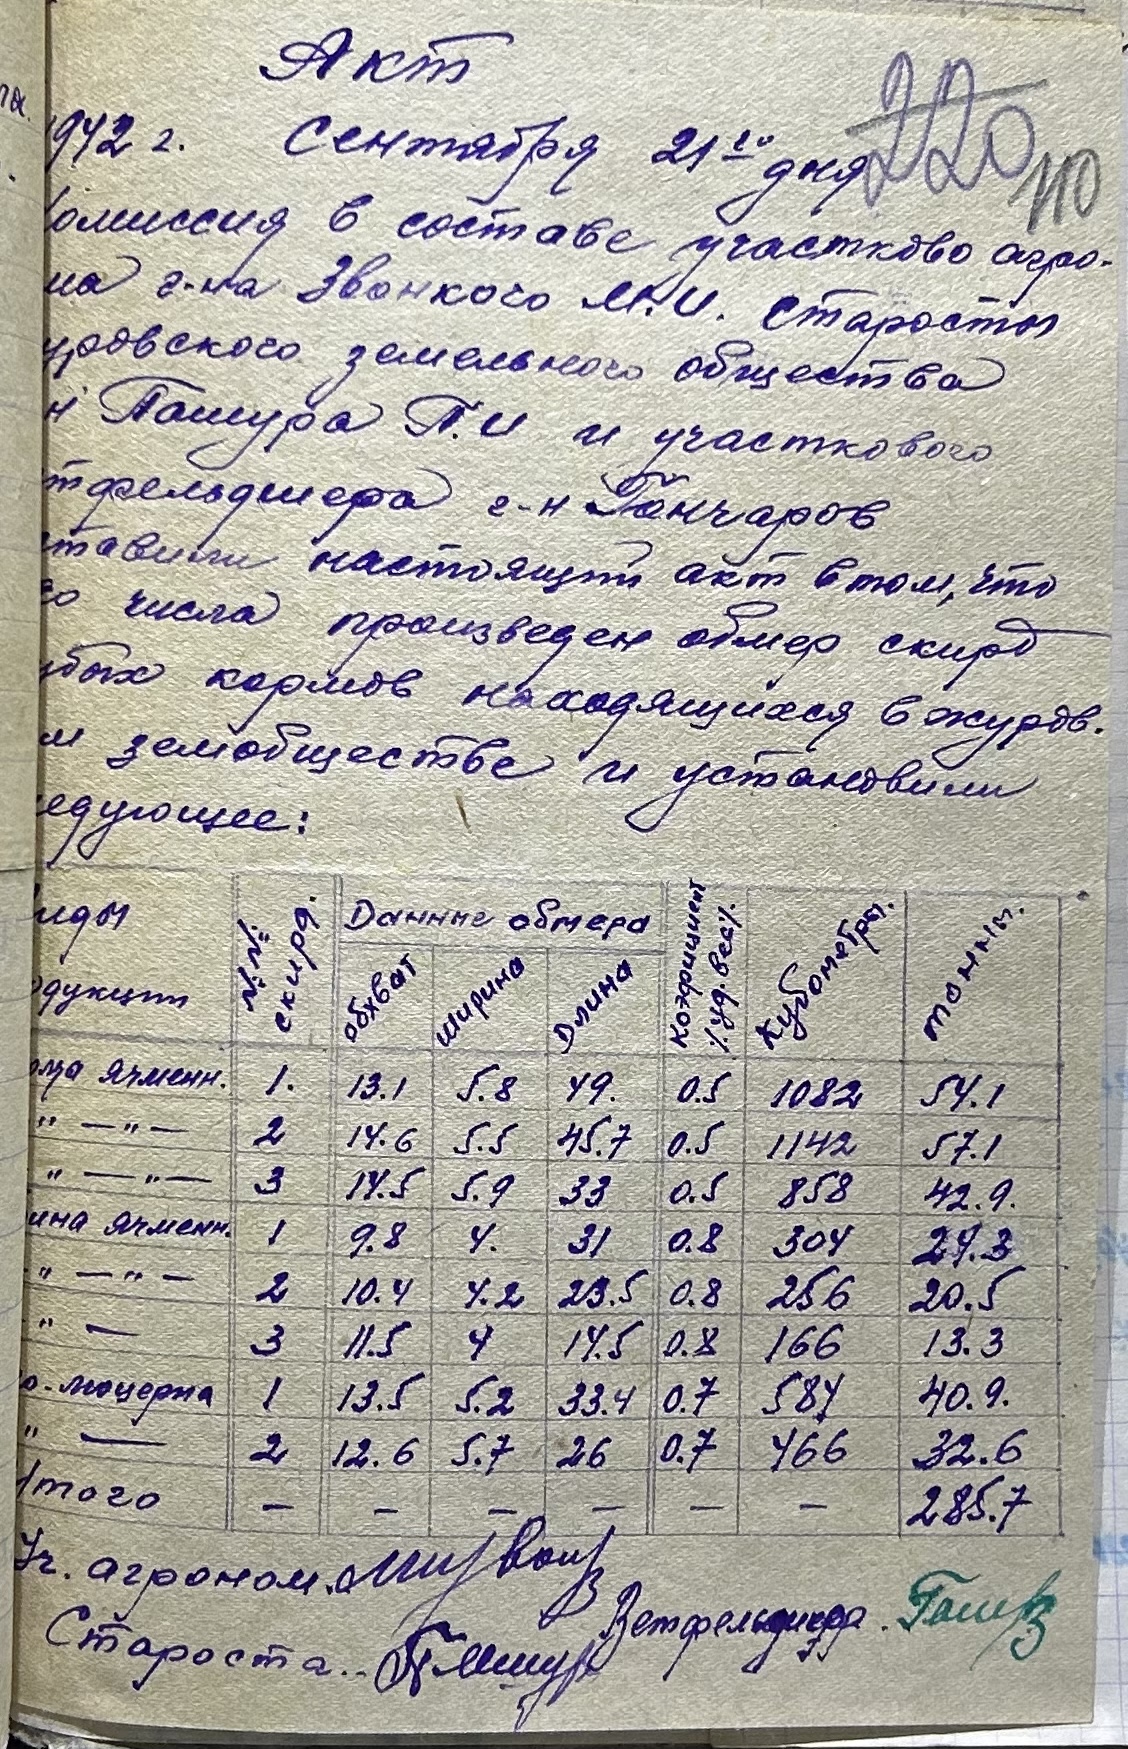 Акт
220
110
1942 г. Сентября 21го дня
омиссия в составе участково агро-
ма г-на Звонкого М.И. старосты
уровского земельного общества
н Пашура П.И и участкового
тфельдшера г-н Гончаров
ставили настоящий акт в том, что
го числа произведен обмер скирд
убых кормов находящихся в журов.
м земобществе и установили
ледующее:
иды одукции | №№ скирд. | Данные обмера | Коэфициент уд. веса | Кубометры. | тонны.
обхват | ширина | Длина
ома ячменн. | 1. | 13.1 | 5.8 | 49. | 0.5 | 1082 | 54.1
" — " — | 2 | 14.6 | 5.5 | 45.7 | 0.5 | 1142 | 57.1
" — " — | 3 | 14.5 | 5.9 | 33 | 0.5 | 858 | 42.9.
ина ячменн. | 1 | 9.8 | 4. | 31 | 0.8 | 304 | 24.3
" — " — | 2 | 10.4 | 4.2 | 23.5 | 0.8 | 256 | 20.5
" — | 3 | 11.5 | 4 | 14.5 | 0.8 | 166 | 13.3
о-люцерна | 1 | 13.5 | 5.2 | 33.4 | 0.7 | 584 | 40.9.
" — | 2 | 12.6 | 5.7 | 26 | 0.7 | 466 | 32.6
Итого | — | — | — | — | — | — | 285.7
Уч. агроном.
Ветфельдшера.
Староста..